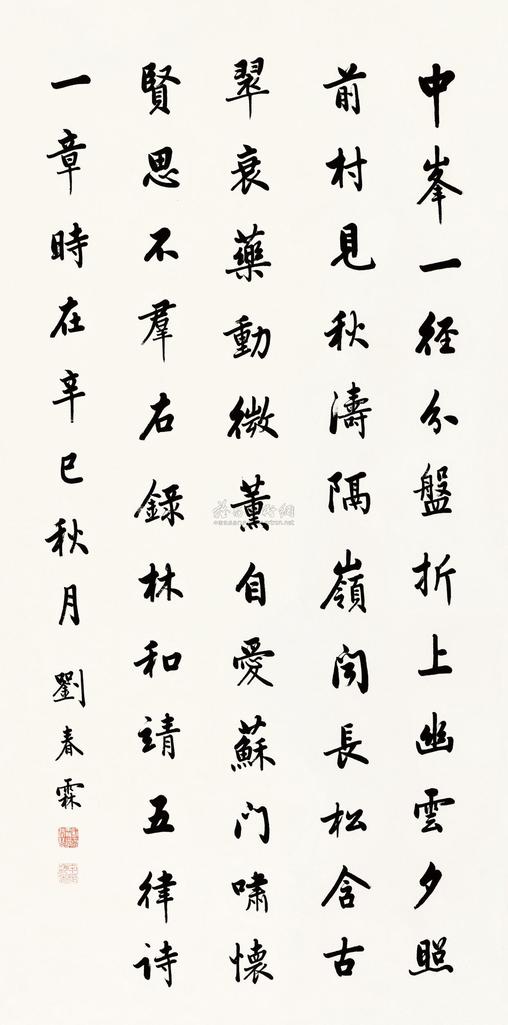 中峯一徑分盤折上幽雲夕照
前村見秋濤隔嶺聞長松含古
翠衰藥動微薰自愛蘇門嘯懷
賢思不羣右錄林和靖五律詩
一章時在辛巳秋月 劉春霖